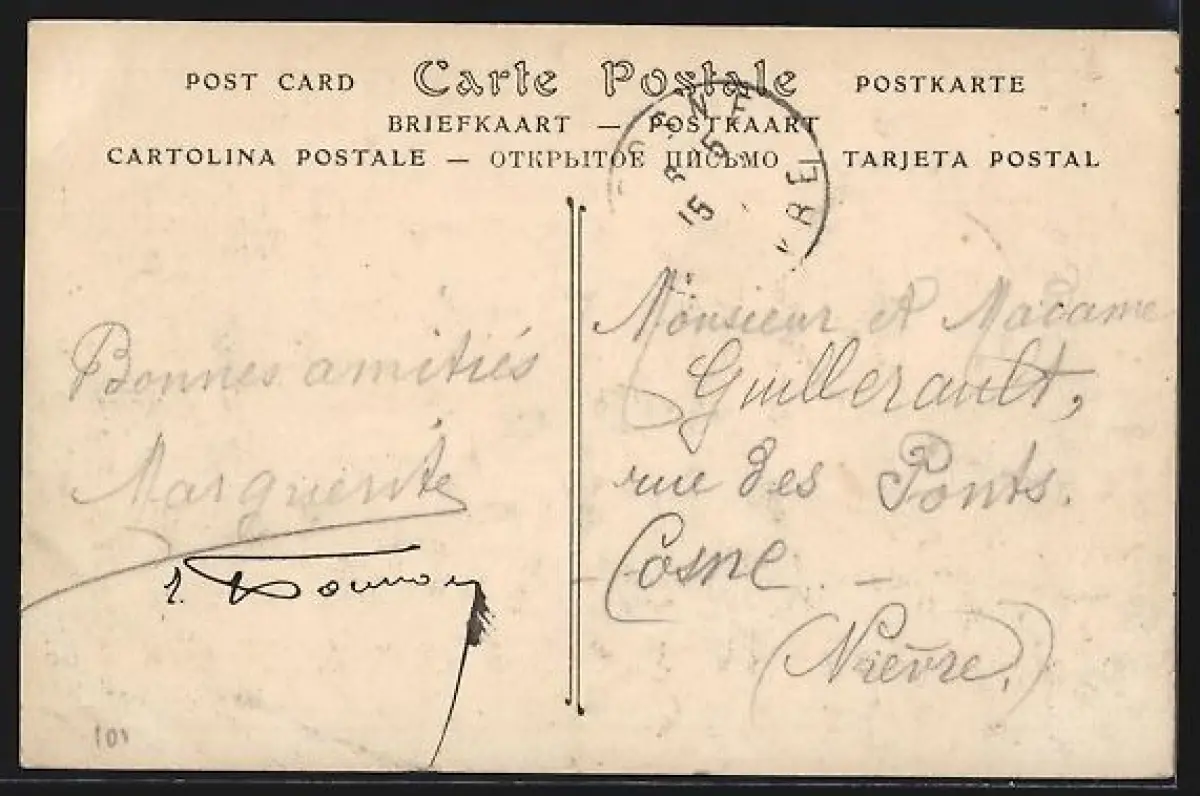 POST CARD Carte Postale POSTKARTE
BRIEFKAART — POSTKAART
CARTOLINA POSTALE — ОТКРЫТОЕ ПИСЬМО — TARJETA POSTAL
15 5
Bonnes amitiés
Marguerite
Monsieur et Madame
Guillerault,
rue des Ponts.
Cosne
(Nièvre.)
101